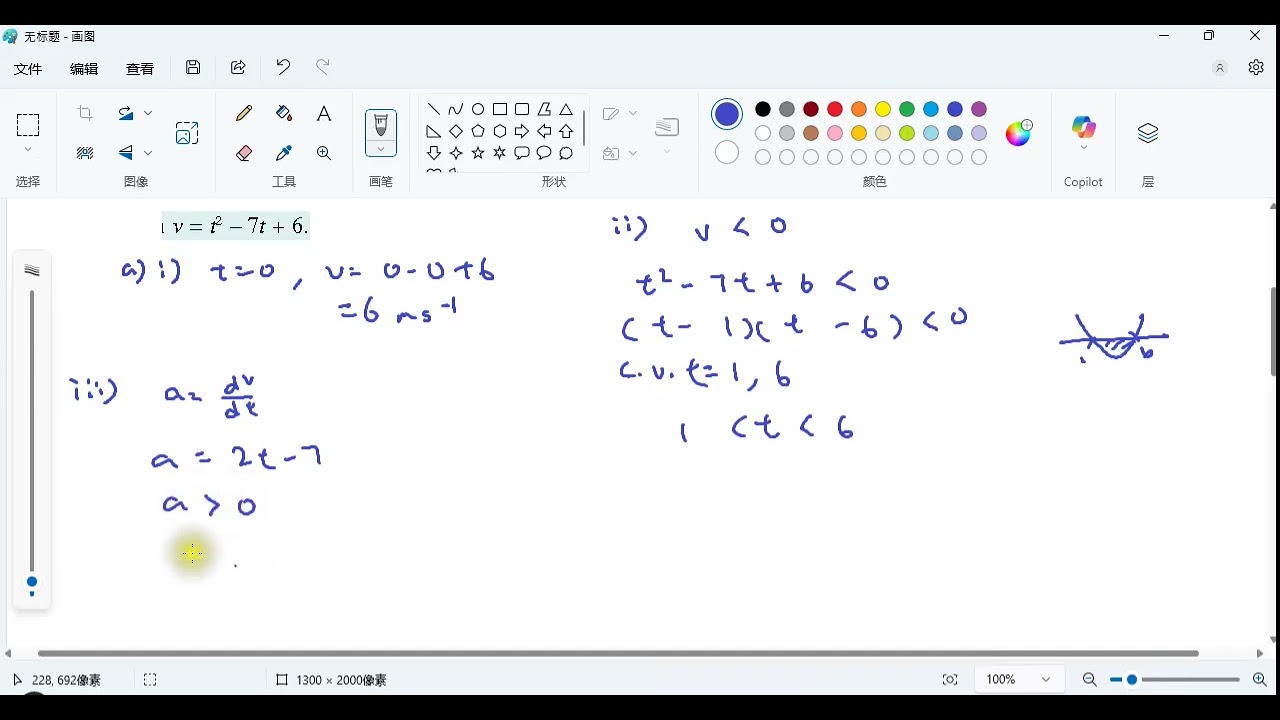 无标题 - 画图
文件 编辑 查看
选择 图像 工具 画笔 形状 颜色 Copilot 层
v = t² − 7t + 6.
a) i) t=0 , v= 0-0+6
=6 ms⁻¹
iii) a= dv/dt
a = 2t-7
a > 0
ii) v < 0
t² - 7t + 6 < 0
(t - 1)(t - 6) < 0
c.v. t= 1, 6
1 < t < 6
1 6
228, 692像素 1300 × 2000像素 100%